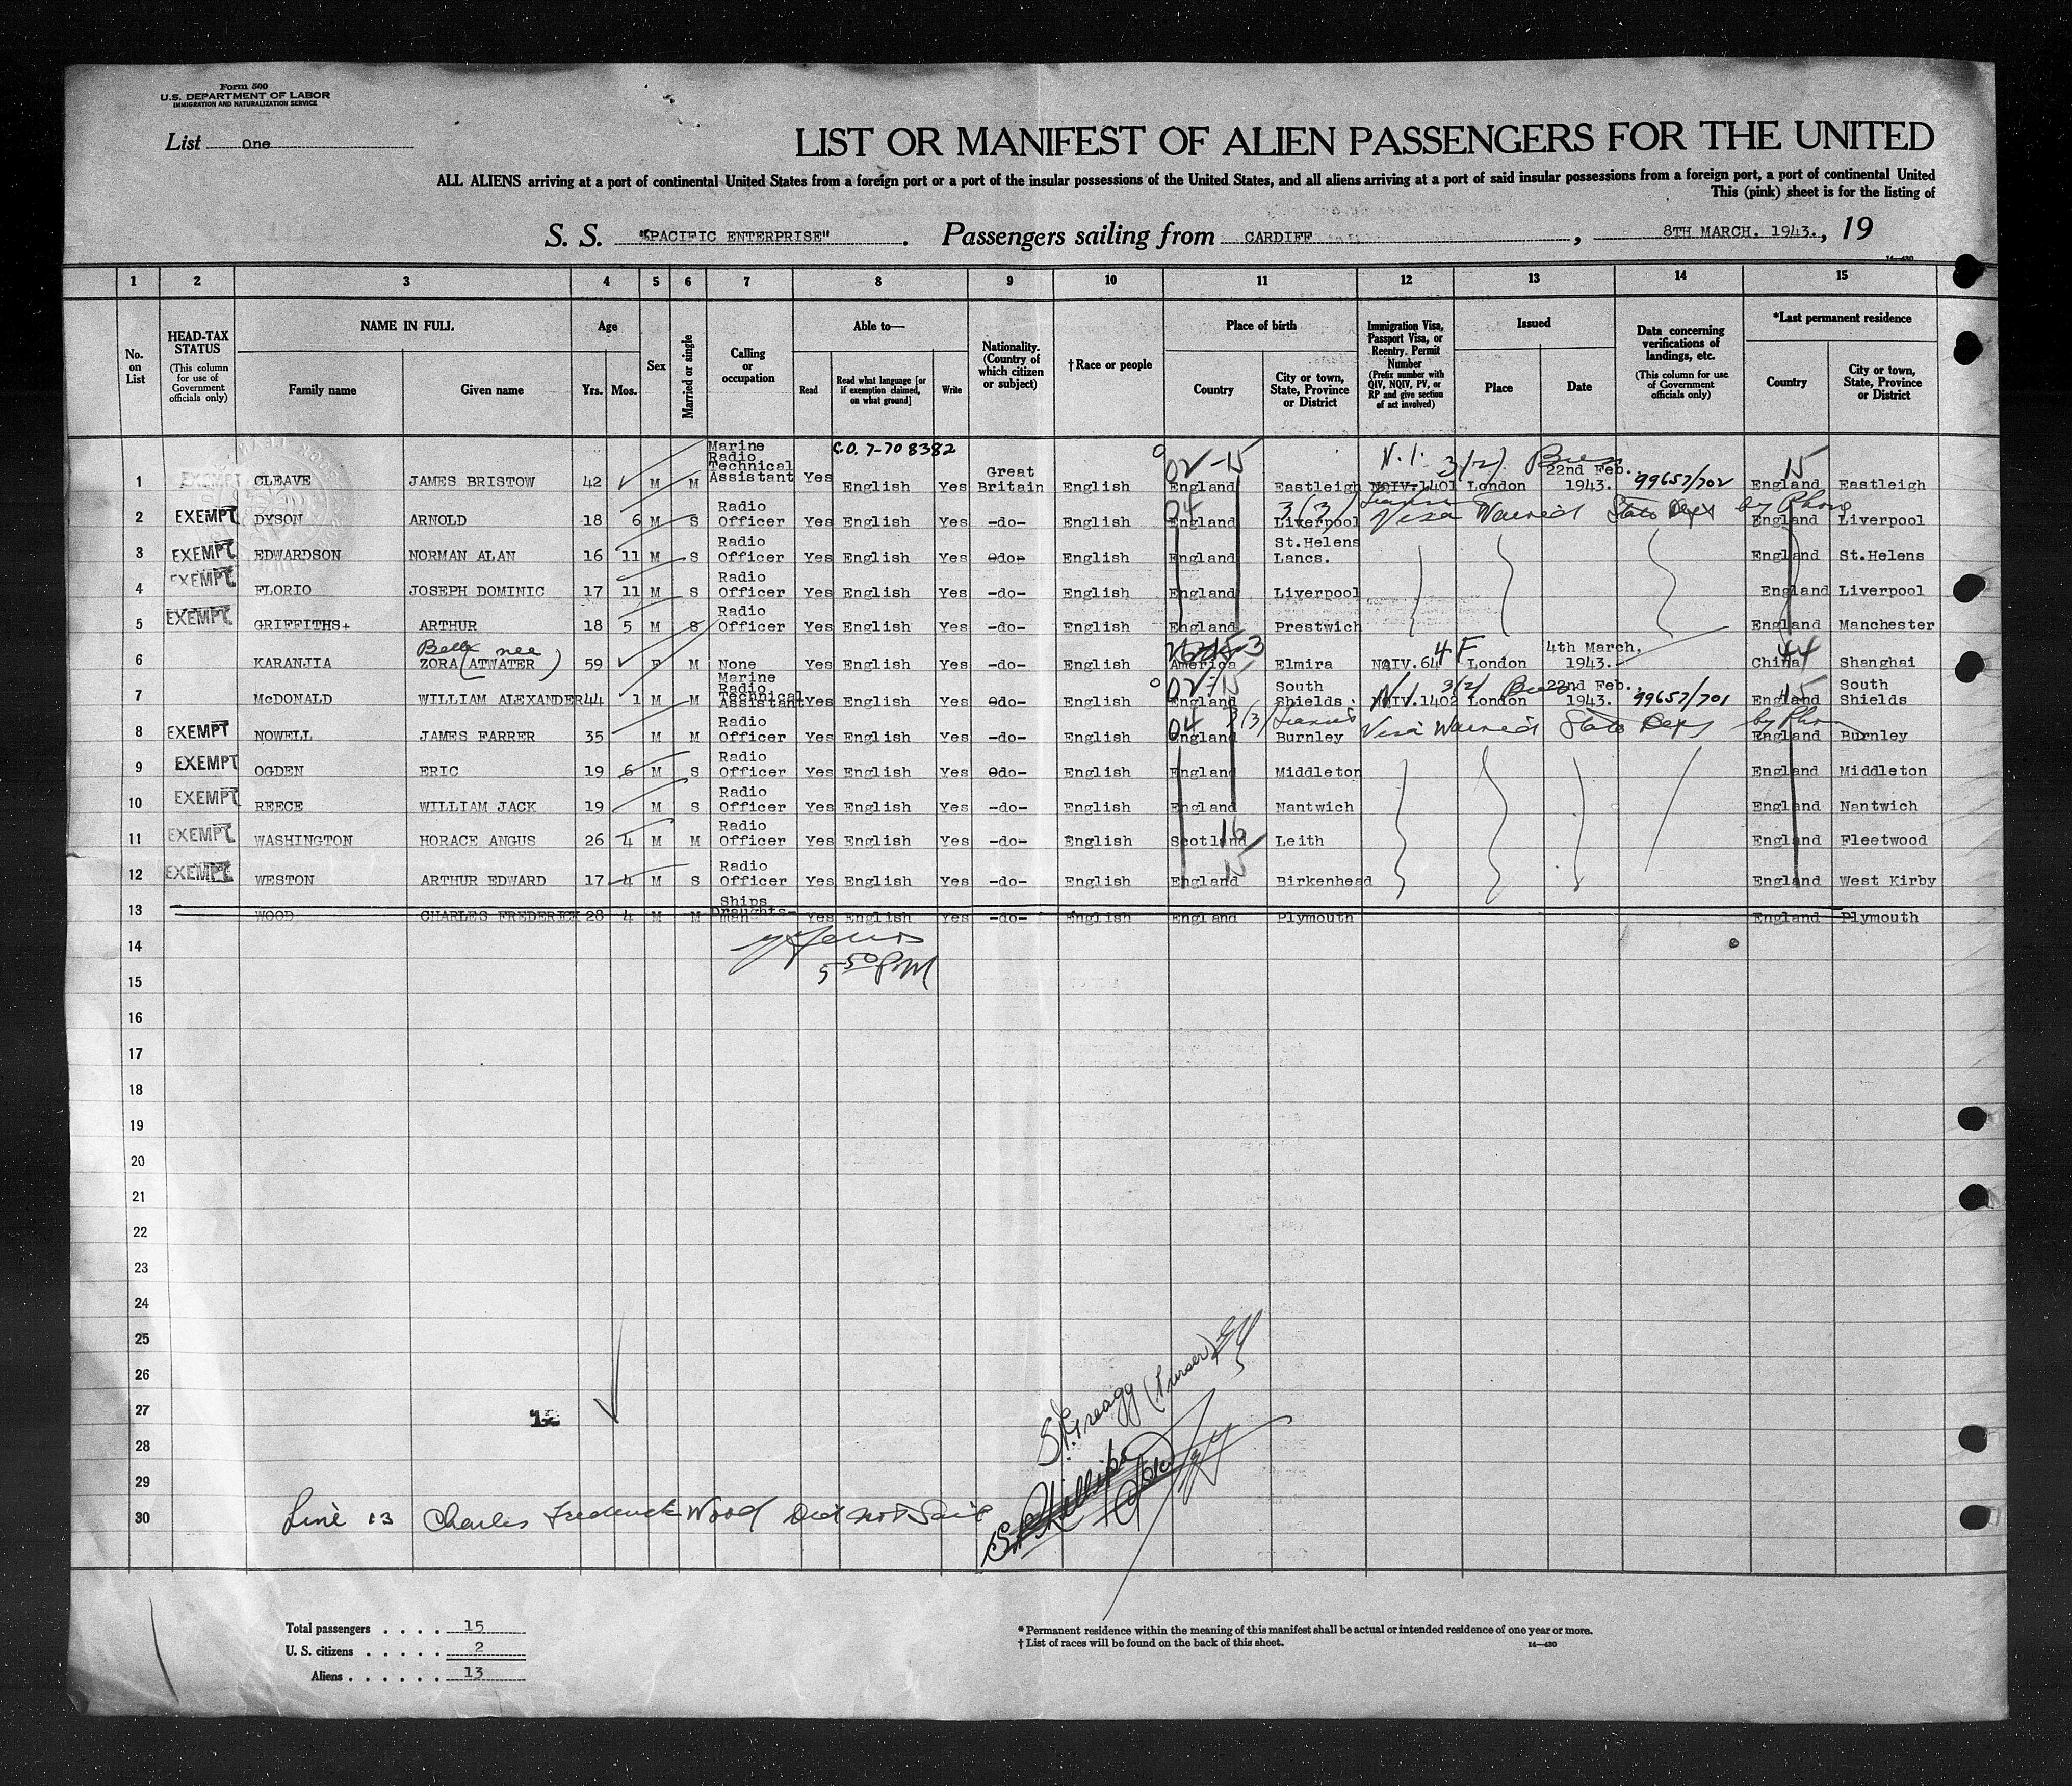 Form 500
U.S. DEPARTMENT OF LABOR
IMMIGRATION AND NATURALIZATION SERVICE
List One
LIST OR MANIFEST OF ALIEN PASSENGERS FOR THE UNITED
ALL ALIENS arriving at a port of continental United States from a foreign port or a port of the insular possessions of the United States, and all aliens arriving at a port of said insular possessions from a foreign port, a port of continental United
This (pink) sheet is for the listing of
S. S. "PACIFIC ENTERPRISE" . Passengers sailing from CARDIFF , 8TH MARCH. 1943., 19
14—430
1 2 3 4 5 6 7 8 9 10 11 12 13 14 15
No. on List
HEAD-TAX STATUS
(This column for use of Government officials only)
NAME IN FULL
Family name Given name
Age
Yrs. Mos.
Sex
Married or single
Calling or occupation
Able to—
Read
Read what language [or if exemption claimed, on what ground]
Write
Nationality. (Country of which citizen or subject)
†Race or people
Place of birth
Country
City or town, State, Province or District
Immigration Visa, Passport Visa, or Reentry Permit Number
(Prefix number with QIV, NQIV, PV, or RP and give section of act involved)
Issued
Place Date
Data concerning verifications of landings, etc.
(This column for use of Government officials only)
*Last permanent residence
Country
City or town, State, Province or District
C.O. 7-708382
02-15 N.I. 3(2) 15
1 EXEMPT CLEAVE JAMES BRISTOW 42 M M Marine Radio Technical Assistant Yes English Yes Great Britain English England Eastleigh NQIV.1401 London 22nd Feb. 1943. 99657/702 England Eastleigh
2 EXEMPT DYSON ARNOLD 18 6 M S Radio Officer Yes English Yes -do- English 04 England 3(3) Liverpool Visa Waived State Dept by Phone England Liverpool
3 EXEMPT EDWARDSON NORMAN ALAN 16 11 M S Radio Officer Yes English Yes -do- English England St.Helens Lancs. England St.Helens
4 EXEMPT FLORIO JOSEPH DOMINIC 17 11 M S Radio Officer Yes English Yes -do- English England Liverpool England Liverpool
5 EXEMPT GRIFFITHS+ ARTHUR 18 5 M S Radio Officer Yes English Yes -do- English England Prestwich England Manchester
6 KARANJIA Belle nee ZORA (ATWATER) 59 F M None Yes English Yes -do- English America Elmira NQIV.64 4F London 4th March, 1943. China 44 Shanghai
7 McDONALD WILLIAM ALEXANDER 44 1 M M Marine Radio Technical Assistant Yes English Yes -do- English 02-15 England South Shields N.I. NQIV.1402 3(2) London 22nd Feb. 1943. 99657/701 England 15 South Shields
8 EXEMPT NOWELL JAMES FARRER 35 M M Radio Officer Yes English Yes -do- English 04 England 3(3) Burnley Visa Waived State Dept by Phone England Burnley
9 EXEMPT OGDEN ERIC 19 6 M S Radio Officer Yes English Yes -do- English England Middleton England Middleton
10 EXEMPT REECE WILLIAM JACK 19 M S Radio Officer Yes English Yes -do- English England Nantwich England Nantwich
11 EXEMPT WASHINGTON HORACE ANGUS 26 4 M M Radio Officer Yes English Yes -do- English Scotland 16 Leith England Fleetwood
12 EXEMPT WESTON ARTHUR EDWARD 17 4 M S Radio Officer Yes English Yes -do- English England 15 Birkenhead England West Kirby
13 WOOD CHARLES FREDERICK 28 4 M M Ships Draughts-man Yes English Yes -do- English England Plymouth England Plymouth
14
5 50 PM
15
16
17
18
19
20
21
22
23
24
25
26
27 12
28
29
S. Greagg (Purser)
30 Line 13 Charles Frederick Wood Did not Sail
Total passengers . . . . 15
U. S. citizens . . . . . 2
Aliens . . . . . . 13
* Permanent residence within the meaning of this manifest shall be actual or intended residence of one year or more.
† List of races will be found on the back of this sheet. 14—430